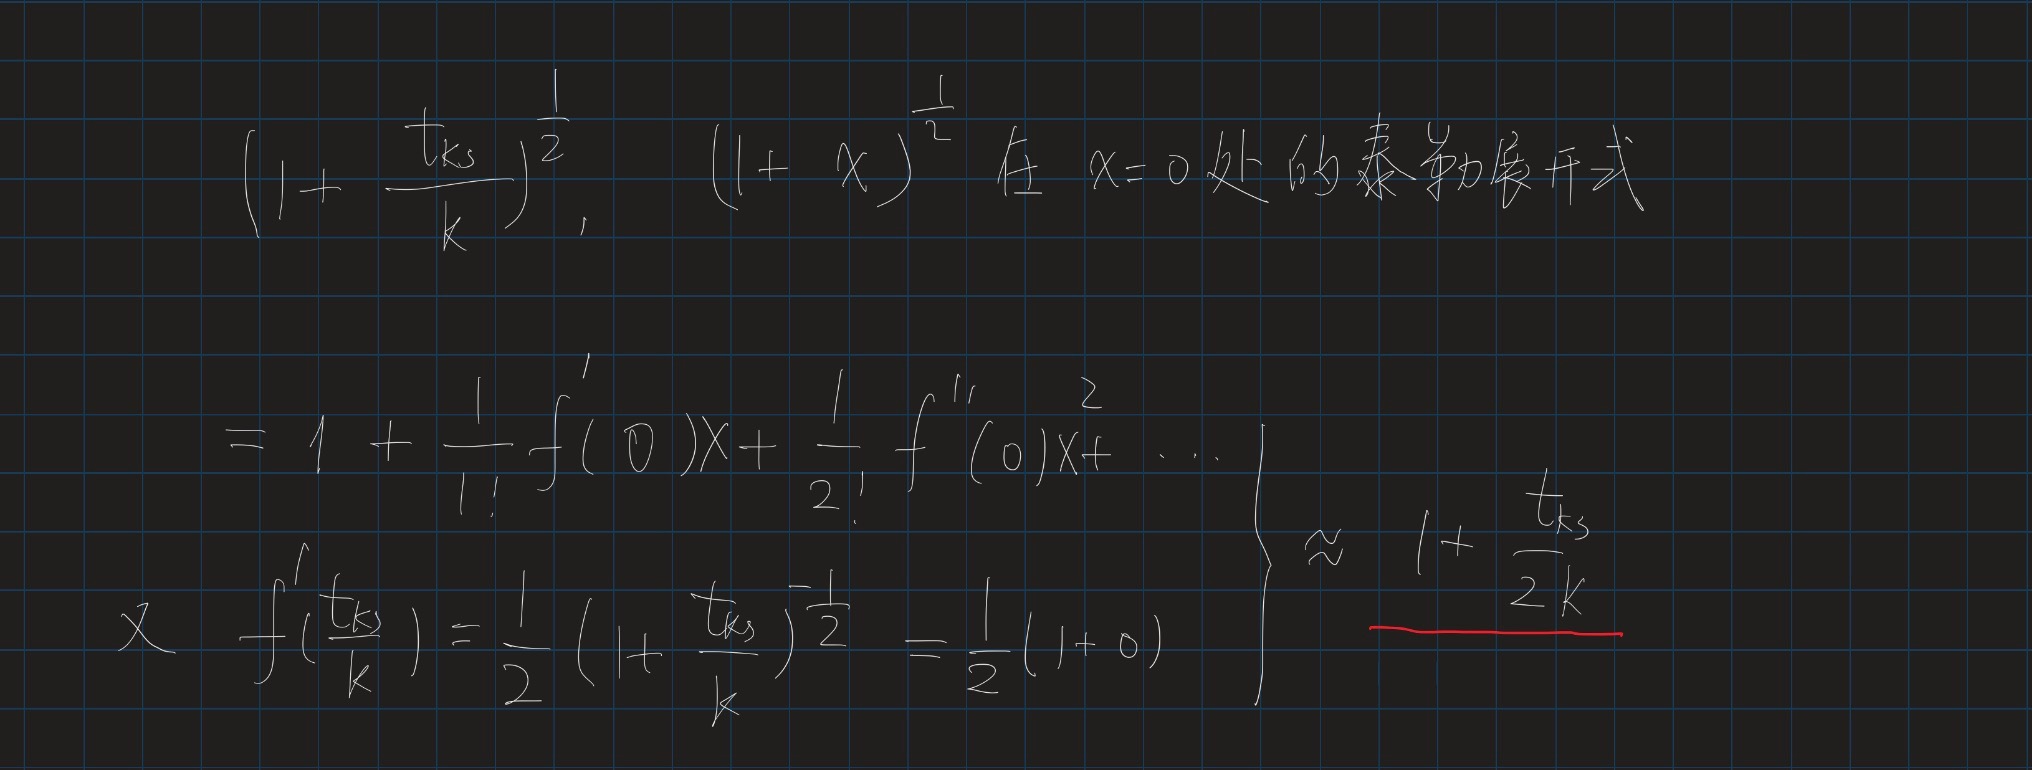 (1 + t_ks/k)^(1/2), (1 + x)^(1/2) 在 x=0 处的泰勒展开式
= 1 + 1/1! f'(0)x + 1/2! f''(0)x^2 + ...
x f'(t_ks/k) = 1/2 (1 + t_ks/k)^(-1/2) = 1/2 (1+0)
≈ 1 + t_ks/2k